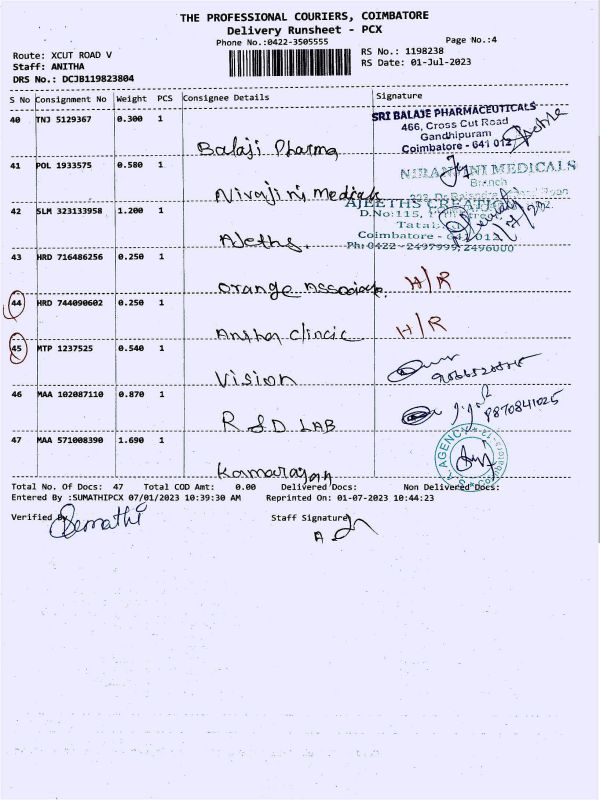 THE PROFESSIONAL COURIERS, COIMBATORE
Delivery Runsheet - PCX
Phone No.:0422-3505555
Page No.:4
Route: XCUT ROAD V
RS No.: 1198238
Staff: ANITHA
RS Date: 01-Jul-2023
DRS No.: DCJB119823804
S No Consignment No Weight PCS Consignee Details Signature
40 TNJ 5129367 0.300 1
SRI BALAJE PHARMACEUTICALS
466, Cross Cut Road
Gandhipuram
Coimbatore - 641 012
Balaji Pharma
41 POL 1933575 0.580 1
NIRANJANI MEDICALS
Branch
Nivajini medicals
42 SLM 323133958 1.200 1
AJEETHS CREATION
D.No:115,
Coimbatore - 641 012
Ph: 0422 - 2497999, 2496000
Ajeths.
43 HRD 716486256 0.250 1
Orange Associate. H/R
44 HRD 744090602 0.250 1
H/R
45 MTP 1237525 0.540 1
Vision
46 MAA 102087110 0.870 1
9870841025
R S D LAB
47 MAA 571008390 1.690 1
AGENCY
Kamarajan
Total No. Of Docs: 47 Total COD Amt: 0.00 Delivered Docs: Non Delivered Docs:
Entered By :SUMATHIPCX 07/01/2023 10:39:30 AM Reprinted On: 01-07-2023 10:44:23
Verified By
Staff Signature
Semathi